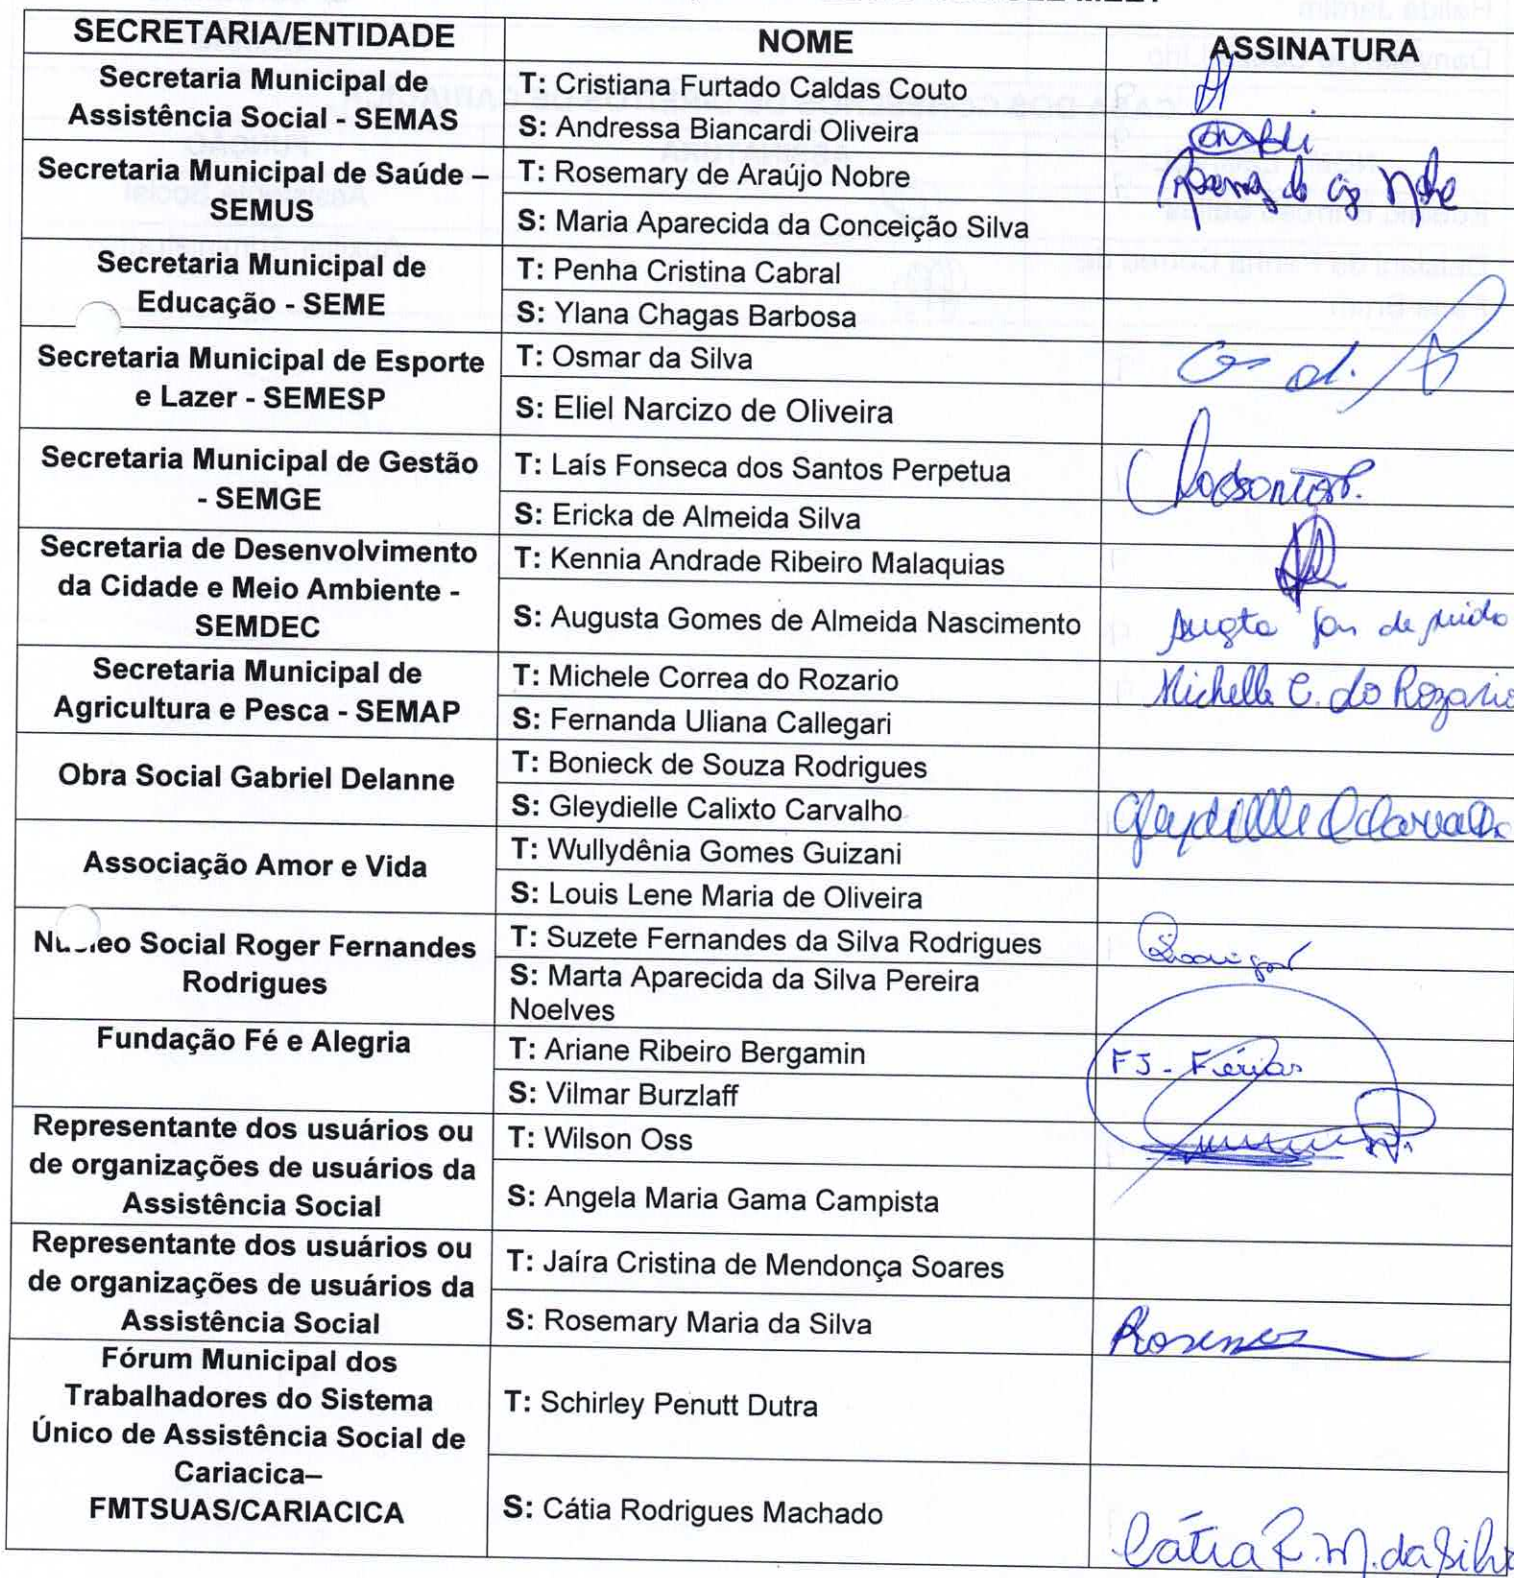 SECRETARIA/ENTIDADE NOME ASSINATURA
Secretaria Municipal de
Assistência Social - SEMAS
T: Cristiana Furtado Caldas Couto
S: Andressa Biancardi Oliveira
Secretaria Municipal de Saúde –
SEMUS
T: Rosemary de Araújo Nobre
S: Maria Aparecida da Conceição Silva
Secretaria Municipal de
Educação - SEME
T: Penha Cristina Cabral
S: Ylana Chagas Barbosa
Secretaria Municipal de Esporte
e Lazer - SEMESP
T: Osmar da Silva
S: Eliel Narcizo de Oliveira
Secretaria Municipal de Gestão
- SEMGE
T: Laís Fonseca dos Santos Perpetua
S: Ericka de Almeida Silva
Secretaria de Desenvolvimento
da Cidade e Meio Ambiente -
SEMDEC
T: Kennia Andrade Ribeiro Malaquias
S: Augusta Gomes de Almeida Nascimento
Secretaria Municipal de
Agricultura e Pesca - SEMAP
T: Michele Correa do Rozario
Michelle C. do Rozario
S: Fernanda Uliana Callegari
Obra Social Gabriel Delanne
T: Bonieck de Souza Rodrigues
S: Gleydielle Calixto Carvalho
Gleydielle C Carvalho
Associação Amor e Vida
T: Wullydênia Gomes Guizani
S: Louis Lene Maria de Oliveira
Núcleo Social Roger Fernandes
Rodrigues
T: Suzete Fernandes da Silva Rodrigues
S: Marta Aparecida da Silva Pereira
Noelves
Fundação Fé e Alegria
T: Ariane Ribeiro Bergamin
FJ - Férias
S: Vilmar Burzlaff
Representante dos usuários ou
de organizações de usuários da
Assistência Social
T: Wilson Oss
S: Angela Maria Gama Campista
Representante dos usuários ou
de organizações de usuários da
Assistência Social
T: Jaíra Cristina de Mendonça Soares
S: Rosemary Maria da Silva
Fórum Municipal dos
Trabalhadores do Sistema
Único de Assistência Social de
Cariacica–
FMTSUAS/CARIACICA
T: Schirley Penutt Dutra
S: Cátia Rodrigues Machado
Cátia R. M. da Silva